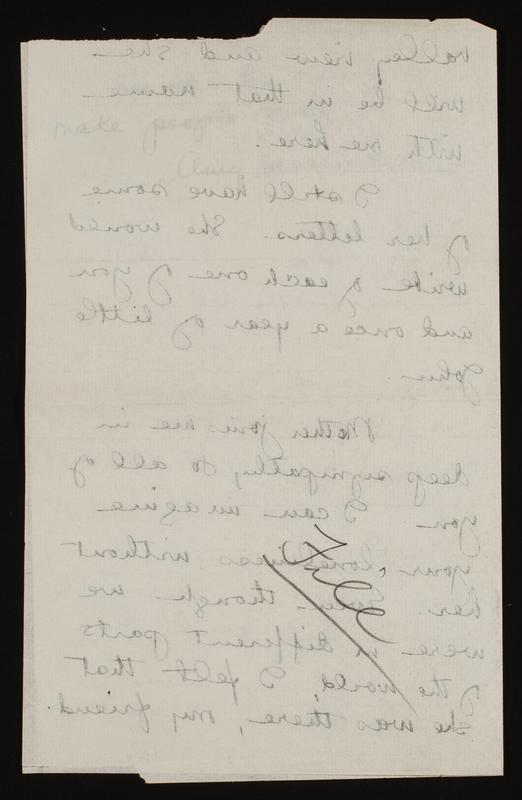 valley view and she
will be in that name
with me here.
I still have some
of her letters. She would
write of each one of you
and once a year of little
John.
Mother joins me in
deep sympathy to all of
you I can imagine
your loneliness without
her. Even though we
were in different parts
of the world, I felt that
she was there, my friend.
make